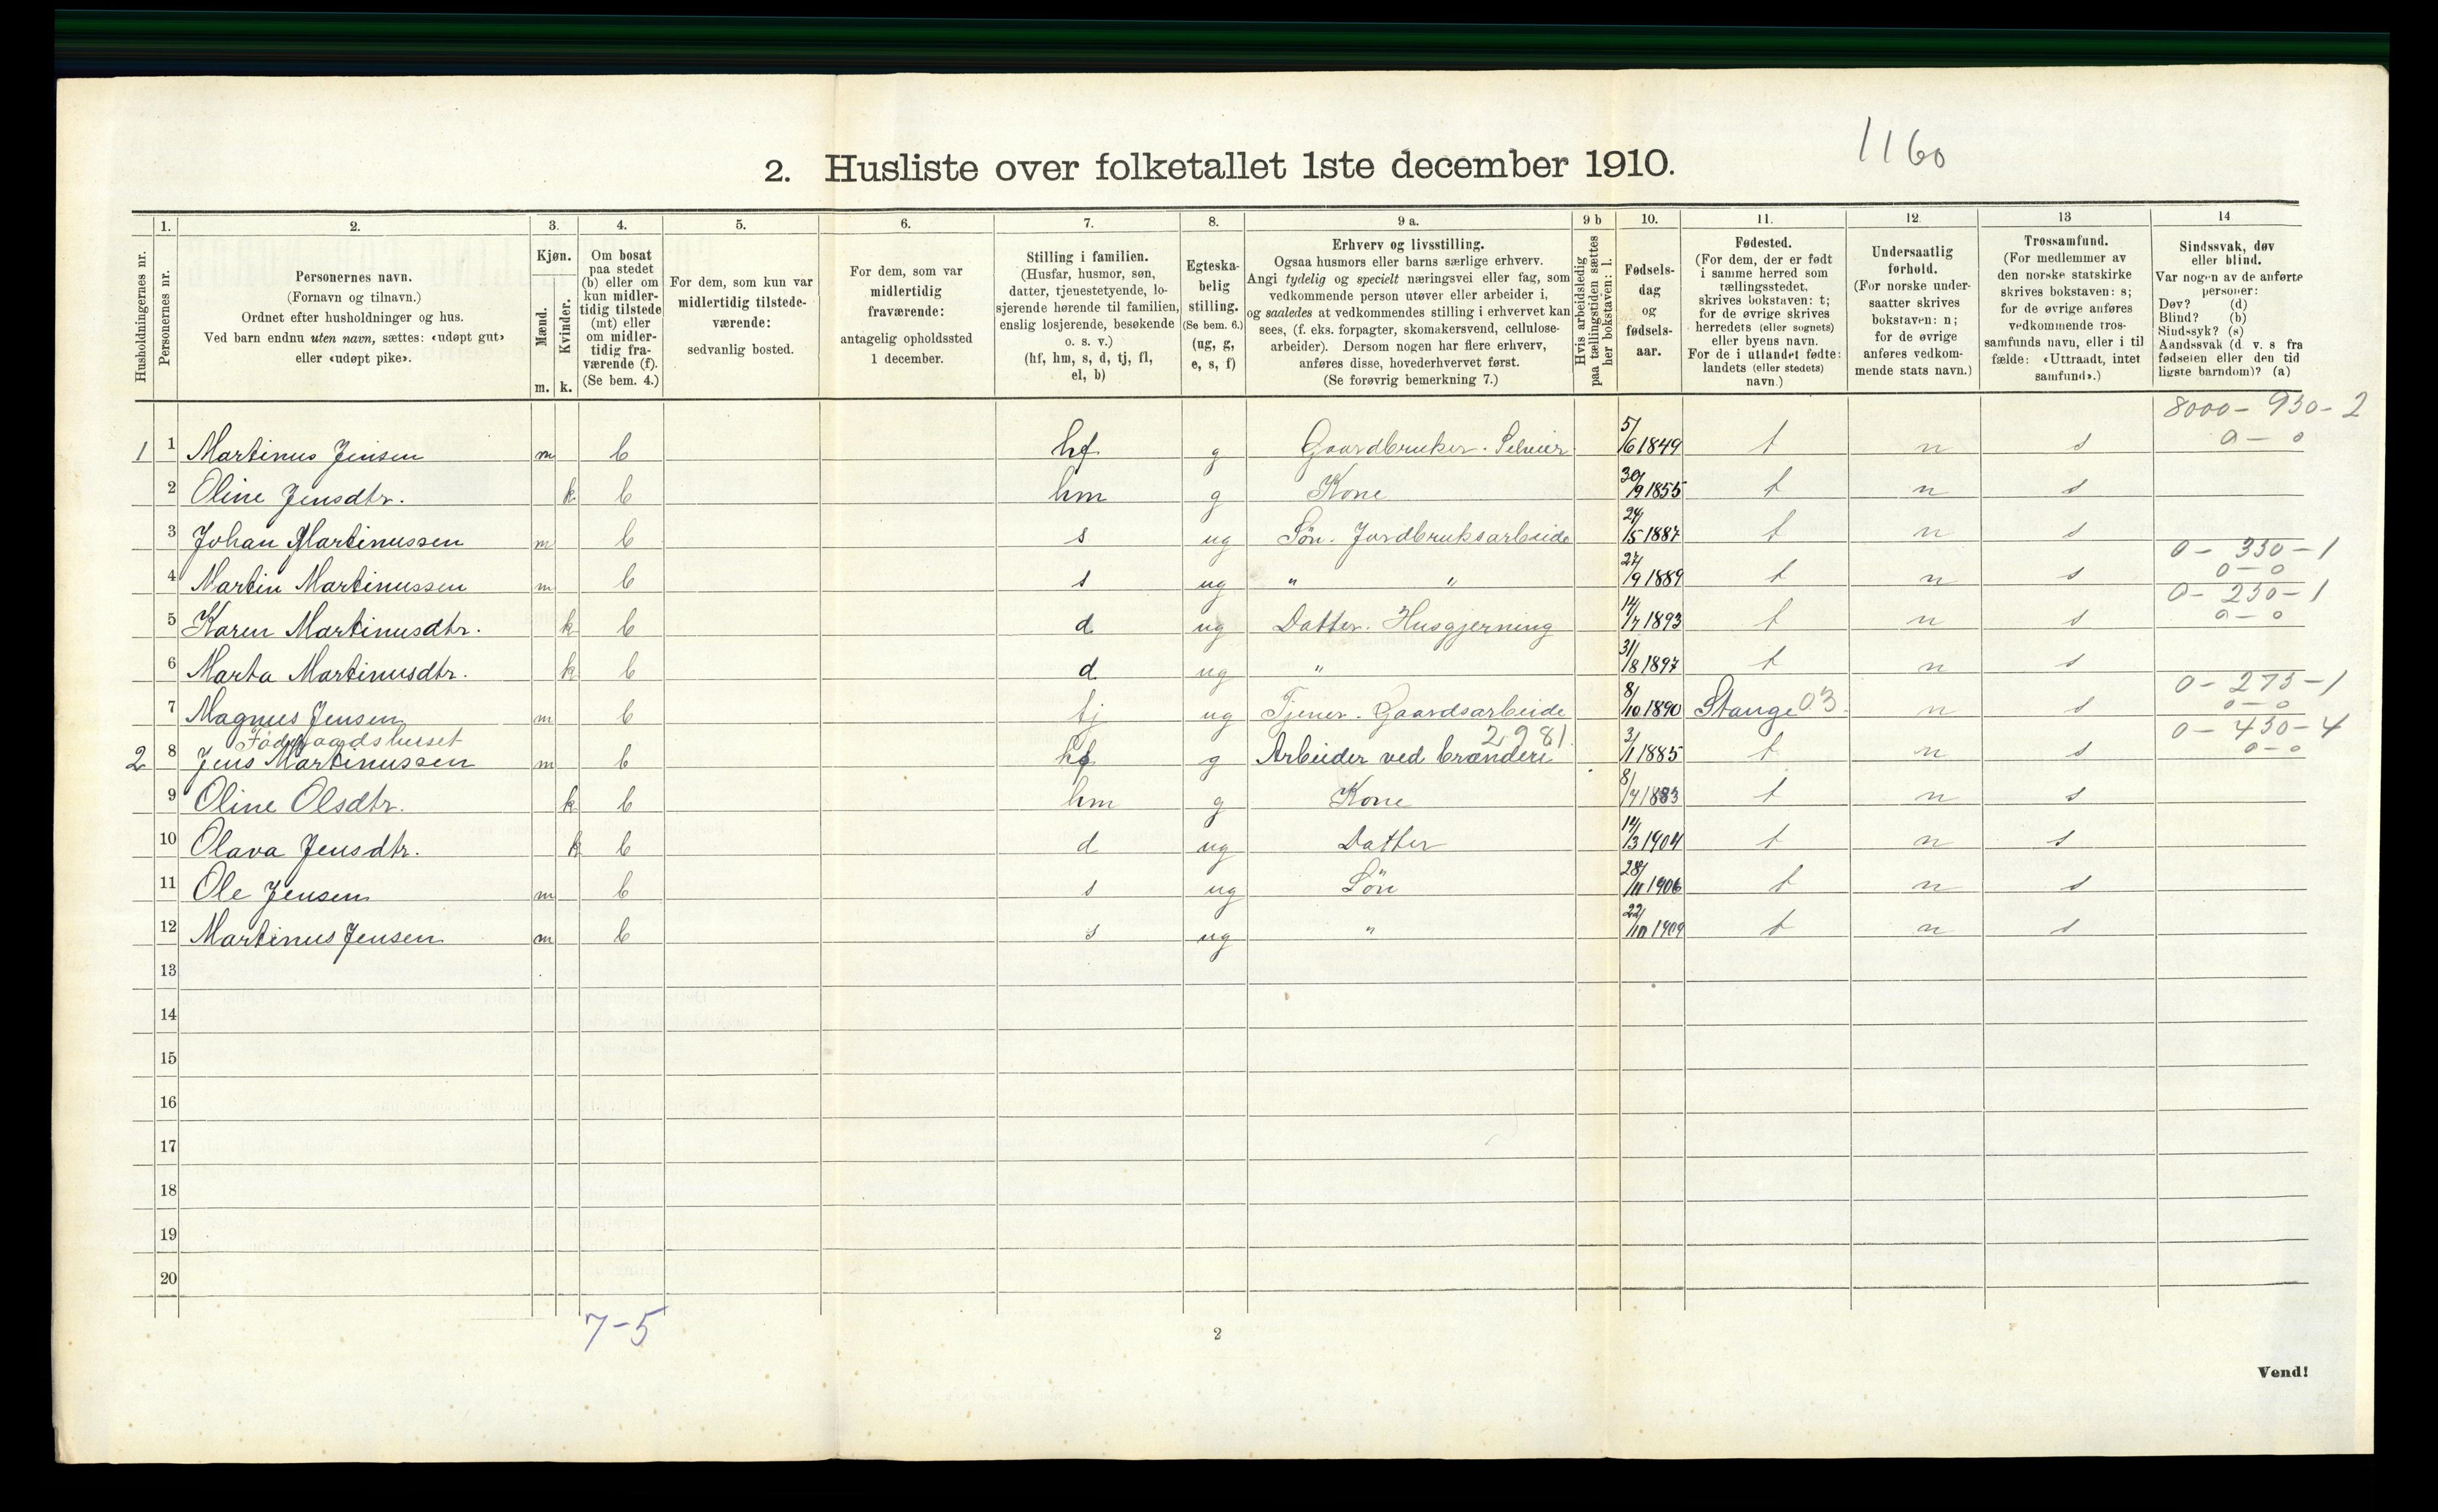 1160
2. Husliste over folketallet 1ste december 1910.
Husholdningernes nr.
1.
Personernes nr.
2.
Personernes navn.
(Fornavn og tilnavn.)
Ordnet efter husholdninger og hus.
Ved barn endnu uten navn, sættes: «udøpt gut»
eller «udøpt pike».
3.
Kjøn.
Mænd.
Kvinder.
m. k.
4.
Om bosat
paa stedet
(b) eller om
kun midler-
tidig tilstede
(mt) eller
om midler-
tidig fra-
værende (f).
(Se bem. 4.)
5.
For dem, som kun var
midlertidig tilstede-
værende:
sedvanlig bosted.
6.
For dem, som var
midlertidig
fraværende:
antagelig opholdssted
1 december.
7.
Stilling i familien.
(Husfar, husmor, søn,
datter, tjenestetyende, lo-
sjerende hørende til familien,
enslig losjerende, besøkende
o. s. v.)
(hf, hm, s, d, tj, fl,
el, b)
8.
Egteska-
belig
stilling.
(Se bem. 6.)
(ug, g,
e, s, f)
9 a.
Erhverv og livsstilling.
Ogsaa husmors eller barns særlige erhverv.
Angi tydelig og specielt næringsvei eller fag, som
vedkommende person utøver eller arbeider i,
og saaledes at vedkommendes stilling i erhvervet kan
sees, (f. eks. forpagter, skomakersvend, cellulose-
arbeider). Dersom nogen har flere erhverv,
anføres disse, hovederhvervet først.
(Se forøvrig bemerkning 7.)
9 b
Hvis arbeidsledig
paa tællingstiden sættes
her bokstaven: l.
10.
Fødsels-
dag
og
fødsels-
aar.
11.
Fødested.
(For dem, der er født
i samme herred som
tællingsstedet,
skrives bokstaven: t;
for de øvrige skrives
herredets (eller sognets)
eller byens navn.
For de i utlandet fødte:
landets (eller stedets)
navn.)
12.
Undersaatlig
forhold.
(For norske under-
saatter skrives
bokstaven: n;
for de øvrige
anføres vedkom-
mende stats navn.)
13
Trossamfund.
(For medlemmer av
den norske statskirke
skrives bokstaven: s;
for de øvrige anføres
vedkommende tros-
samfunds navn, eller i til
fælde: «Uttraadt, intet
samfund».)
14
Sindssvak, døv
eller blind.
Var nogen av de anførte
personer:
Døv? (d)
Blind? (b)
Sindssyk? (s)
Aandssvak (d. v. s. fra
fødselen eller den tid
ligste barndom)? (a)
8000 - 930 - 2
1 1 Martinus Jensen m b hf g Gaardbruker. Selveier 5/6 1849 t n s 0 - 0
2 Oline Jensdtr. k b hm g Kone 30/9 1855 t n s
3 Johan Martinussen m b s ug Søn. Jordbruksarbeide 24/5 1887 t n s
0 - 330 - 1
4 Martin Martinussen m b s ug " " 27/9 1889 t n s 0 - 0
0 - 230 - 1
5 Karen Martinusdtr. k b d ug Datter. Husgjerning 14/7 1893 t n s 0 - 0
6 Marta Martinusdtr. k b d ug " 31/8 1897 t n s
0 - 275 - 1
7 Magnus Jensen m b tj ug Tjener. Gaardsarbeide 8/10 1890 Stange 03 n s 0 - 0
2981
0 - 430 - 4
2 8 Jens Martinussen m b hf g Arbeider ved brænderi 3/1 1885 t n s 0 - 0
9 Oline Olsdtr. k b hm g Kone 8/7 1883 t n s
10 Olava Jensdtr. k b d ug Datter 14/3 1904 t n s
11 Ole Jensen m b s ug Søn 28/11 1906 t n s
12 Martinus Jensen m b s ug " 22/10 1909 t n s
13
14
15
16
17
18
19
20
7-5
2
Vend!